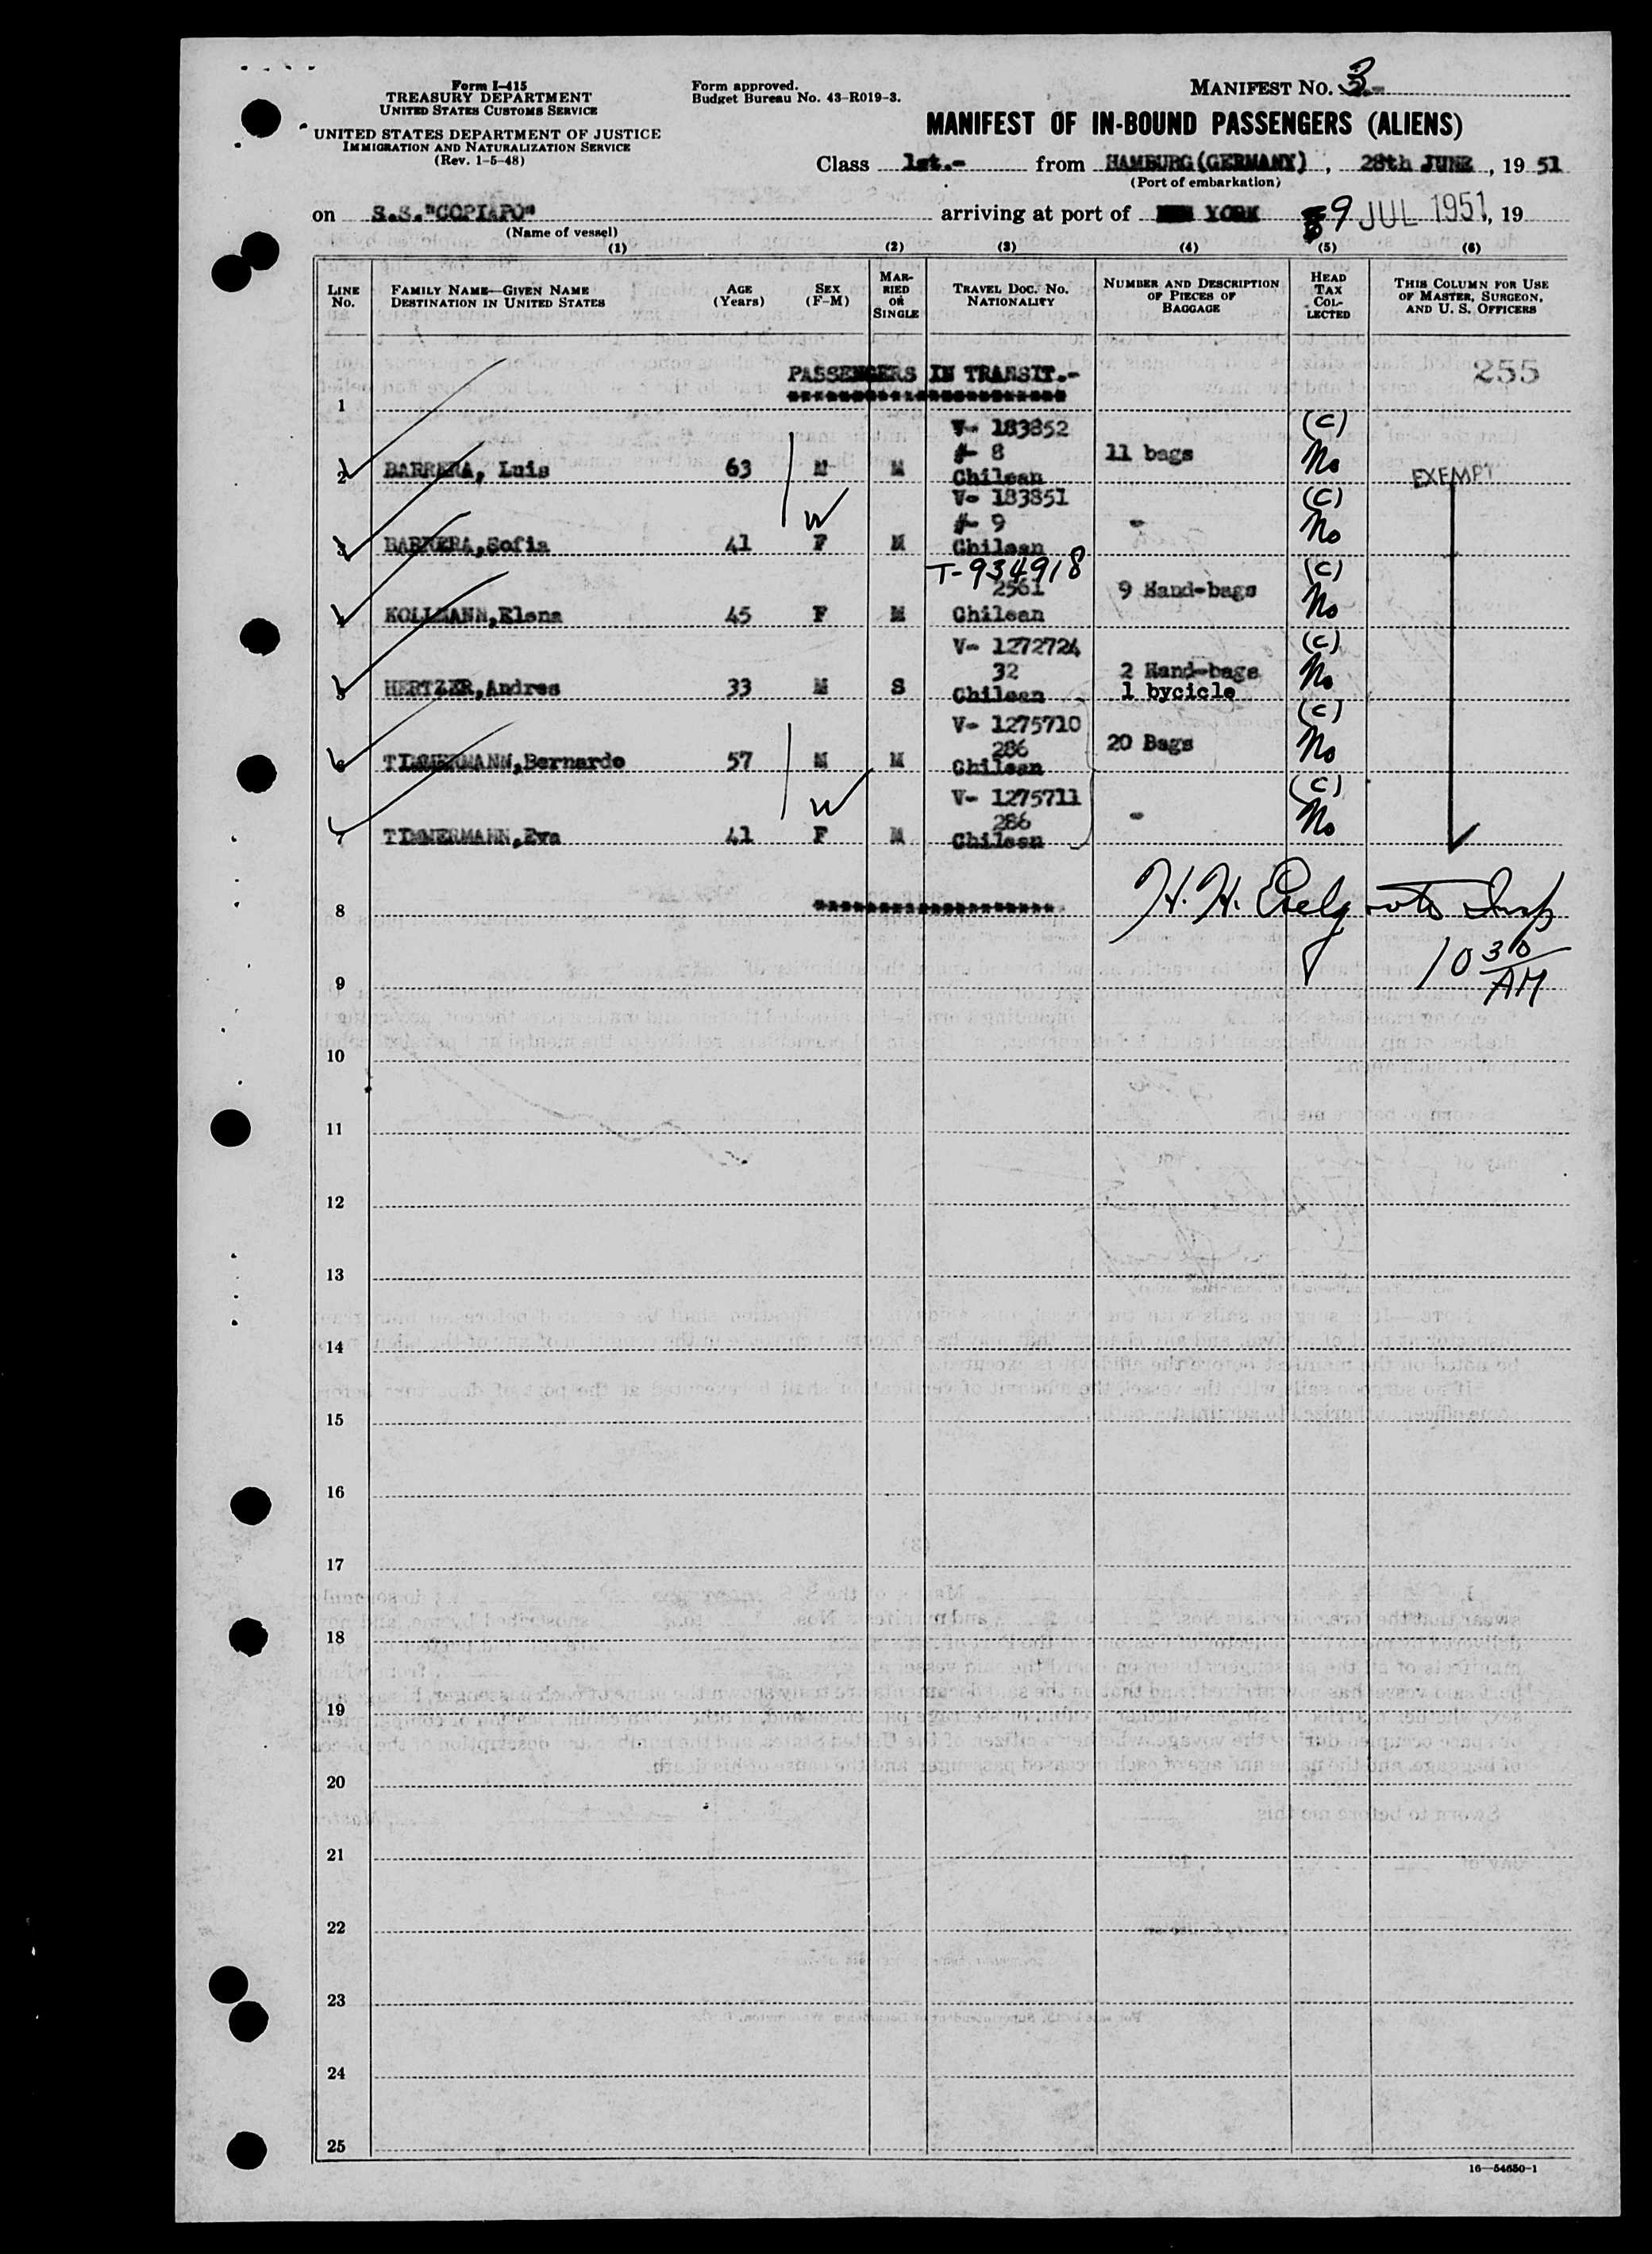 Form I-415
TREASURY DEPARTMENT
UNITED STATES CUSTOMS SERVICE
UNITED STATES DEPARTMENT OF JUSTICE
IMMIGRATION AND NATURALIZATION SERVICE
(Rev. 1-5-48)
Form approved.
Budget Bureau No. 43-R019-3.
MANIFEST NO. 3-
MANIFEST OF IN-BOUND PASSENGERS (ALIENS)
Class 1st.- from HAMBURG(GERMANY), 28th JUNE, 19 51
(Port of embarkation)
on S.S."COPIAPO" arriving at port of NEW YORK 9 JUL 1951, 19
(Name of vessel)
(1) (2) (3) (4) (5) (6)
LINE NO. FAMILY NAME—GIVEN NAME DESTINATION IN UNITED STATES AGE (Years) SEX (F-M) MARRIED OR SINGLE TRAVEL DOC. NO. NATIONALITY NUMBER AND DESCRIPTION OF PIECES OF BAGGAGE HEAD TAX COLLECTED THIS COLUMN FOR USE OF MASTER, SURGEON, AND U. S. OFFICERS
PASSENGERS IN TRANSIT.- 255
1
V- 183852 (C)
# 8 11 bags
2 BARRERA, Luis 63 M M Chilean No EXEMPT
V- 183851 (C)
W # 9 "
3 BARRERA,Sofia 41 F M Chilean No
T-934918 (C)
2561 9 Hand-bags
4 KOLLMANN,Elena 45 F M Chilean No
V- 1272724 (C)
32 2 Hand-bags
5 HERTZER,Andres 33 M S Chilean 1 bycicle No
V- 1275710 (C)
286 20 Bags
6 TIMMERMANN,Bernardo 57 M M Chilean No
V- 1275711 (C)
W 286 "
7 TIMMERMANN,Eva 41 F M Chilean No
8 H. H. Insp
9 10 30/AM
10
11
12
13
14
15
16
17
18
19
20
21
22
23
24
25
16—54650-1